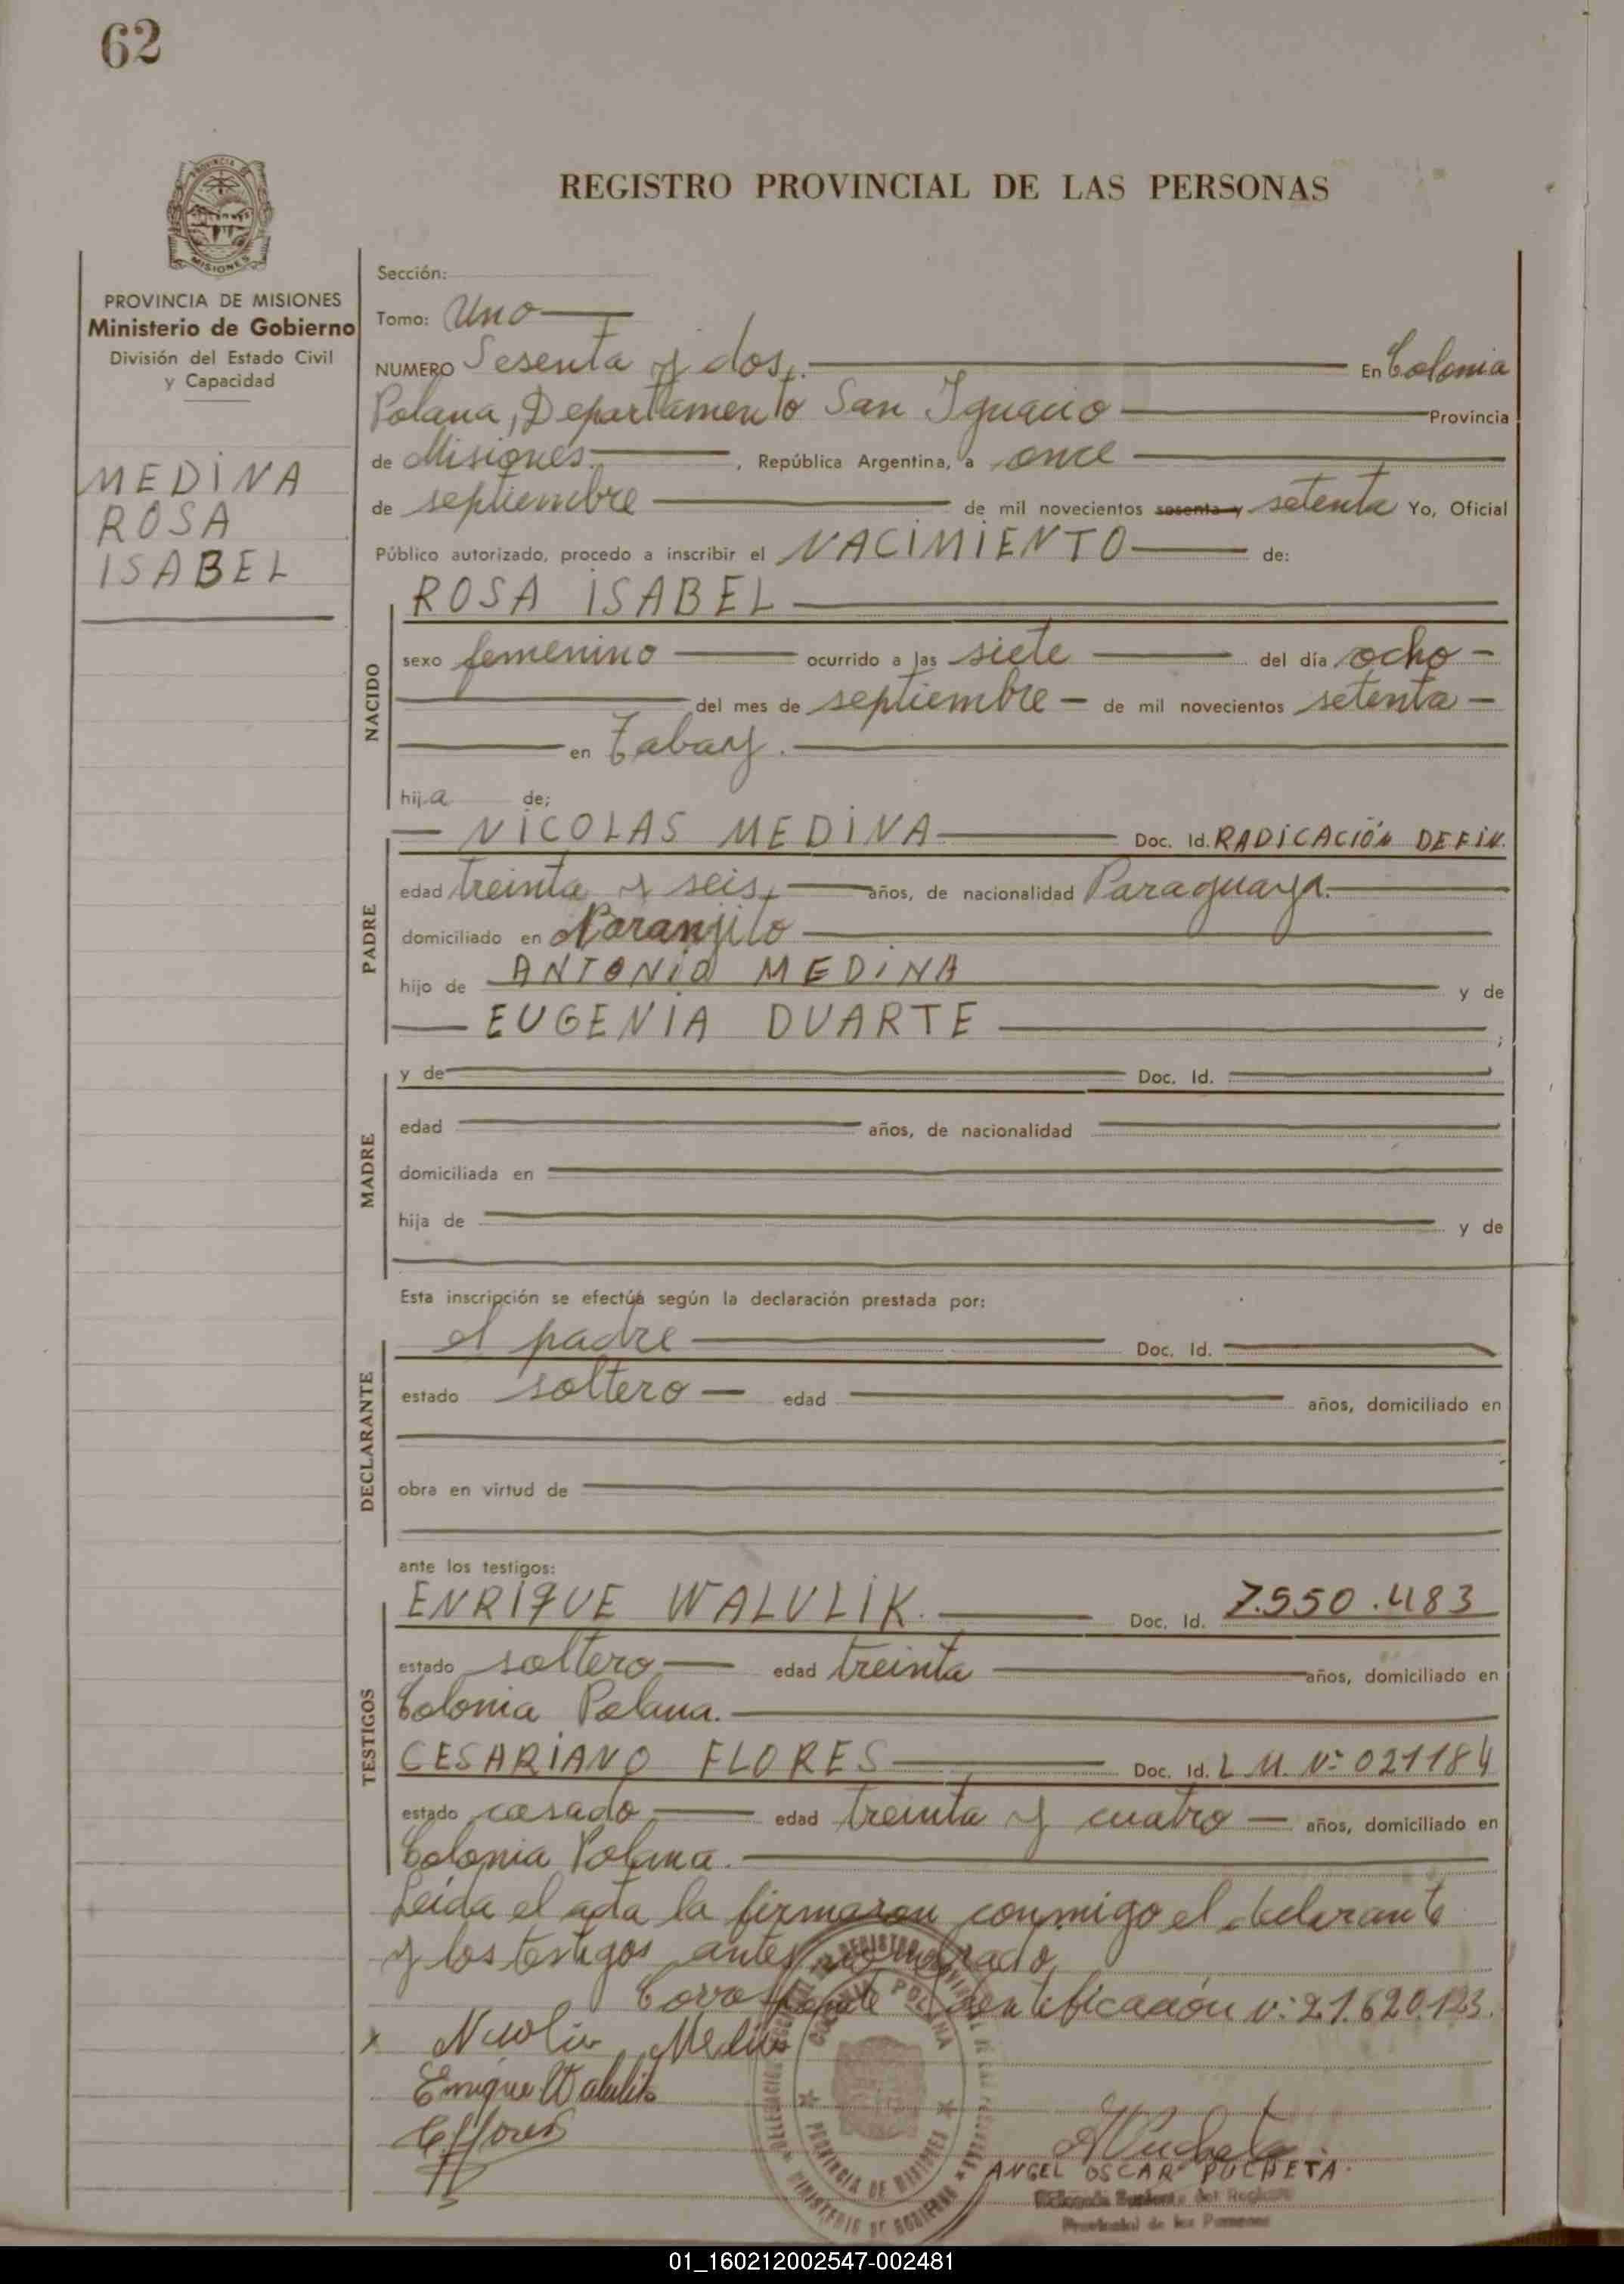 62
REGISTRO PROVINCIAL DE LAS PERSONAS
PROVINCIA
MISIONES
PROVINCIA DE MISIONES
Ministerio de Gobierno
División del Estado Civil
y Capacidad
MEDINA
ROSA
ISABEL
Sección:
Tomo: Uno
NUMERO Sesenta y dos. En Colonia
Polana, Departamento San Ignacio Provincia
de Misiones. , República Argentina, a once
de septiembre de mil novecientos sesenta y setenta Yo, Oficial
Público autorizado, procedo a inscribir el NACIMIENTO de:
NACIDO
ROSA ISABEL
sexo femenino ocurrido a las siete del día ocho
del mes de septiembre de mil novecientos setenta
en Tabay.
hija de;
PADRE
NICOLAS MEDINA Doc. Id. RADICACIÓN DEFIN.
edad treinta y seis años, de nacionalidad Paraguaya.
domiciliado en Naranjito
hijo de ANTONIO MEDINA y de
EUGENIA DUARTE ;
MADRE
y de Doc. Id.
edad años, de nacionalidad
domiciliada en
hija de y de
Esta inscripción se efectúa según la declaración prestada por:
DECLARANTE
el padre Doc. Id.
estado soltero edad años, domiciliado en
obra en virtud de
ante los testigos:
TESTIGOS
ENRIQUE WALULIK. Doc. Id. 7.550.483
estado soltero edad treinta años, domiciliado en
Colonia Polana.
CESARIANO FLORES Doc. Id. L M. Nº 021184
estado casado edad treinta y cuatro años, domiciliado en
Colonia Polana.
Leida el acta la firmaron conmigo el declarante
y los testigos antes
identificación nº 21.620.123.
x Nicolas Medina
Enrique Walulik
C. Flores
COLONIA POLANA
PROVINCIA DE MISIONES
MINISTERIO DE GOBIERNO
ANGEL OSCAR PUCHETA.
Provincial de las Personas
01_160212002547-002481